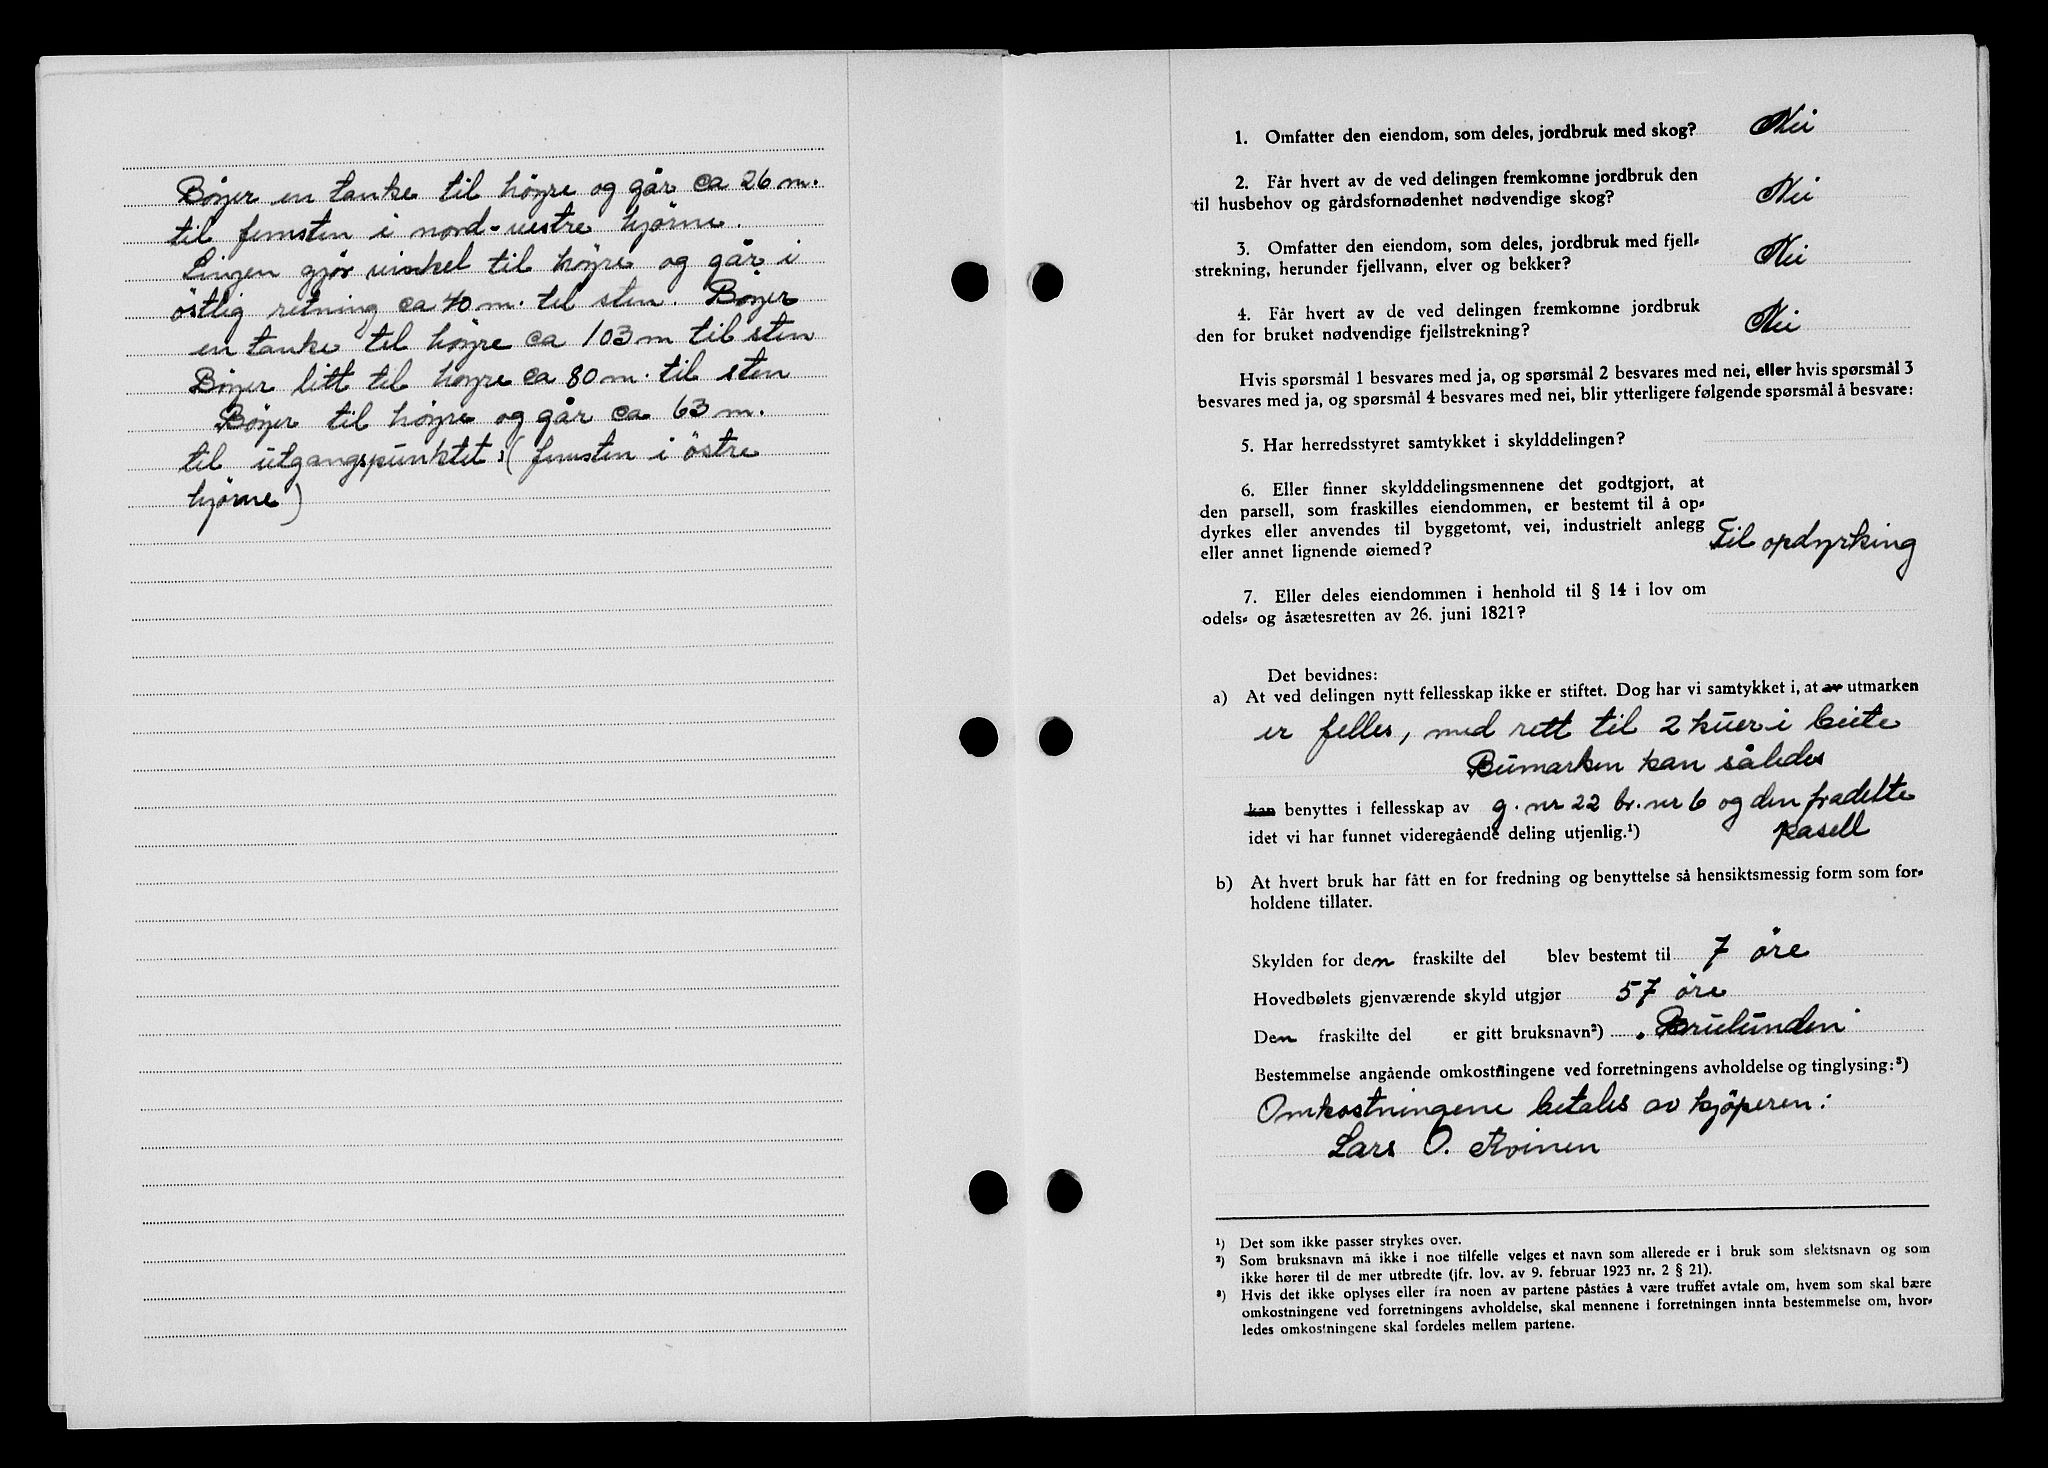 Böyer en tanke til höyre og går ca 26 m.
til femsten i nord-vestre hjörne.
Linjen gjör vinkel til höyre og går i
östlig retning ca 40 m. til sten. Böyer
en tanke til höyre ca 103 m til sten
Böyer litt til höyre ca 80 m. til sten
Böyer til höyre og går ca 63 m.
til utgangspunktet: (femsten i östre
hjörne)
1. Omfatter den eiendom, som deles, jordbruk med skog? Nei
2. Får hvert av de ved delingen fremkomne jordbruk den
til husbehov og gårdsfornødenhet nødvendige skog? Nei
3. Omfatter den eiendom, som deles, jordbruk med fjell-
strekning, herunder fjellvann, elver og bekker? Nei
4. Får hvert av de ved delingen fremkomne jordbruk
den for bruket nødvendige fjellstrekning? Nei
Hvis spørsmål 1 besvares med ja, og spørsmål 2 besvares med nei, eller hvis spørsmål 3
besvares med ja, og spørsmål 4 besvares med nei, blir ytterligere følgende spørsmål å besvare:
5. Har herredsstyret samtykket i skylddelingen?
6. Eller finner skylddelingsmennene det godtgjort, at
den parsell, som fraskilles eiendommen, er bestemt til å op-
dyrkes eller anvendes til byggetomt, vei, industrielt anlegg
eller annet lignende øiemed? Til opdyrking
7. Eller deles eiendommen i henhold til § 14 i lov om
odels- og åsætesretten av 26. juni 1821?
Det bevidnes:
a) At ved delingen nytt fellesskap ikke er stiftet. Dog har vi samtykket i, at av utmarken
er felles, med rett til 2 kuer i beite
Bumarken kan således
kan benyttes i fellesskap av g. nr 22 br. nr 6 og den fradelte
idet vi har funnet videregående deling utjenlig.¹) pasell
b) At hvert bruk har fått en for fredning og benyttelse så hensiktsmessig form som for-
holdene tillater.
Skylden for den fraskilte del blev bestemt til 7 öre
Hovedbølets gjenværende skyld utgjør 57 öre
Den fraskilte del er gitt bruksnavn²) "Brulunden"
Bestemmelse angående omkostningene ved forretningens avholdelse og tinglysing:³)
Omkostningene betales av kjöperen:
Lars O. Kvinen
¹) Det som ikke passer strykes over.
²) Som bruksnavn må ikke i noe tilfelle velges et navn som allerede er i bruk som slektsnavn og som
ikke hører til de mer utbredte (jfr. lov. av 9. februar 1923 nr. 2 § 21).
³) Hvis det ikke oplyses eller fra noen av partene påståes å være truffet avtale om, hvem som skal bære
omkostningene ved forretningens avholdelse, skal mennene i forretningen innta bestemmelse om, hvor-
ledes omkostningene skal fordeles mellem partene.